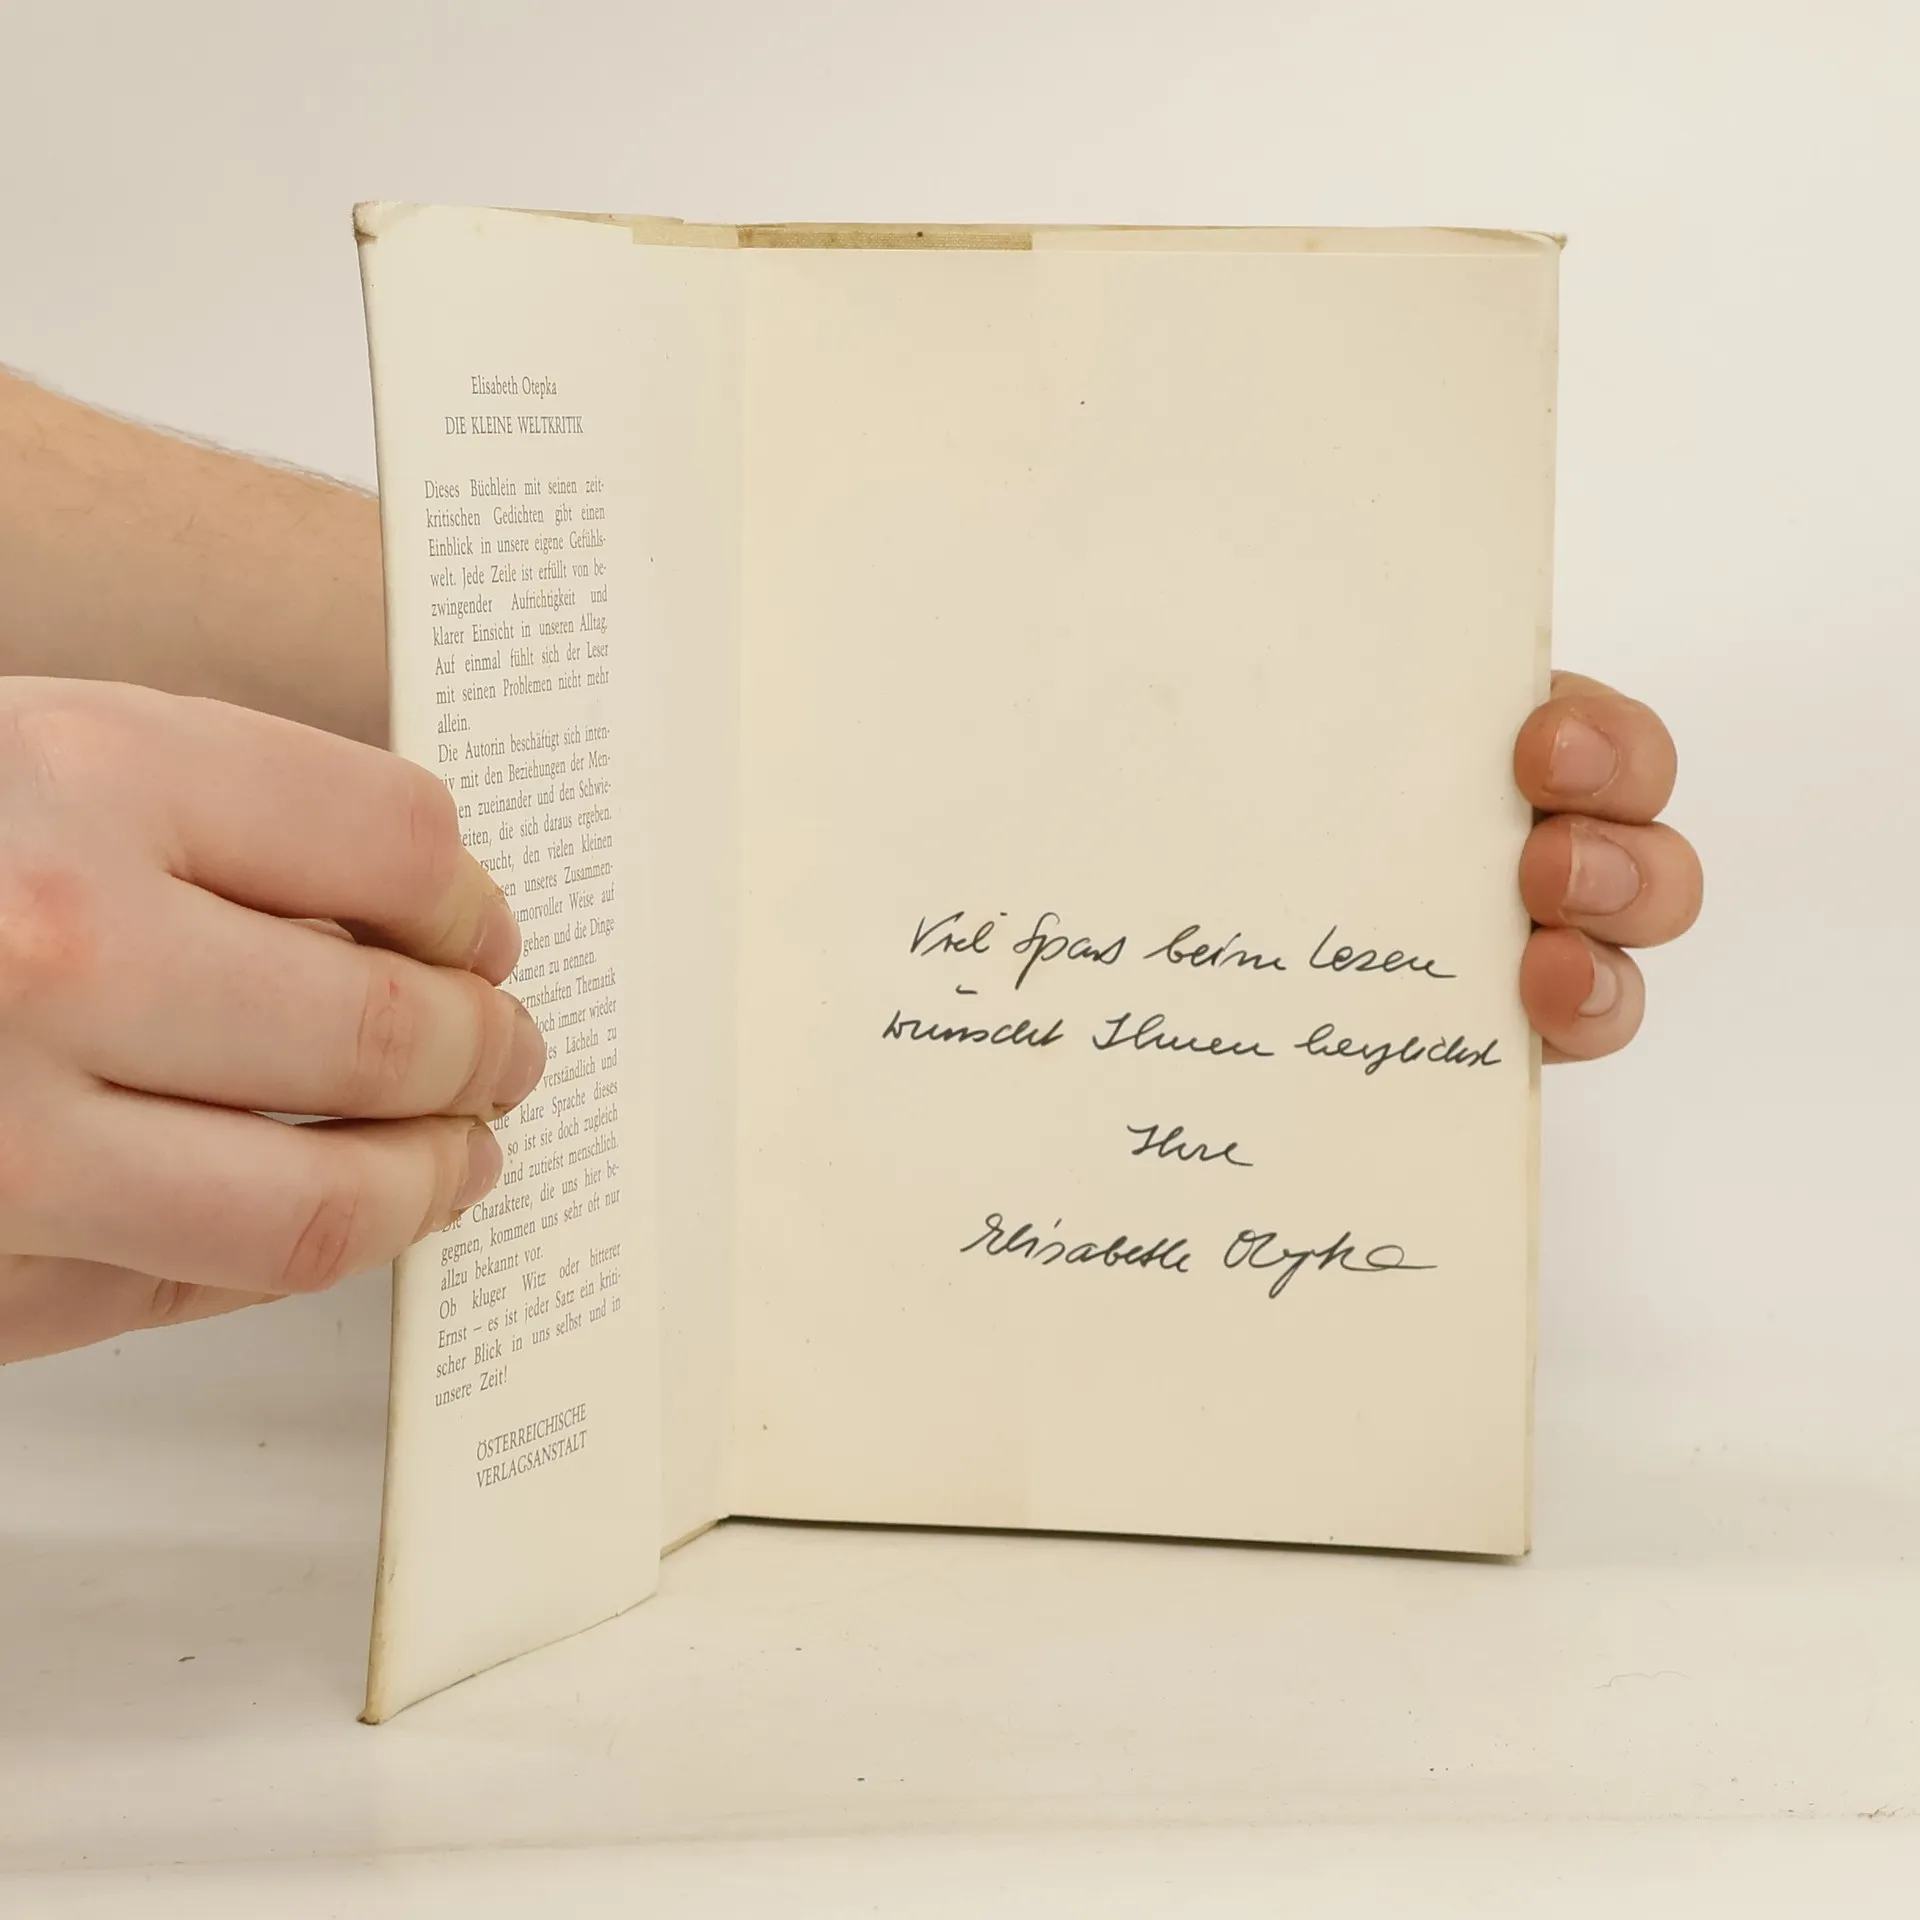 Elisabeth Otepka
DIE KLEINE WELTKRITIK
Dieses Büchlein mit seinen zeit-
kritischen Gedichten gibt einen
Einblick in unsere eigene Gefühls-
welt. Jede Zeile ist erfüllt von be-
zwingender Aufrichtigkeit und
klarer Einsicht in unseren Alltag.
Auf einmal fühlt sich der Leser
mit seinen Problemen nicht mehr
allein.
Die Autorin beschäftigt sich inten-
mit den Beziehungen der Men-
zueinander und den Schwie-
die sich daraus ergeben.
den vielen kleinen
unseres Zusammen-
Weise auf
gehen und die Dinge
Namen zu nennen.
ernsthaften Thematik
doch immer wieder
Lächeln zu
verständlich und
die klare Sprache dieses
so ist sie doch zugleich
und zutiefst menschlich.
Die Charaktere, die uns hier be-
gegnen, kommen uns sehr oft nur
allzu bekannt vor.
Ob kluger Witz oder bitterer
Ernst – es ist jeder Satz ein kriti-
scher Blick in uns selbst und in
unsere Zeit!
ÖSTERREICHISCHE
VERLAGSANSTALT
Viel Spass beim Lesen
wünscht Ihnen herzlichst
Ihre
Elisabeth Otepka